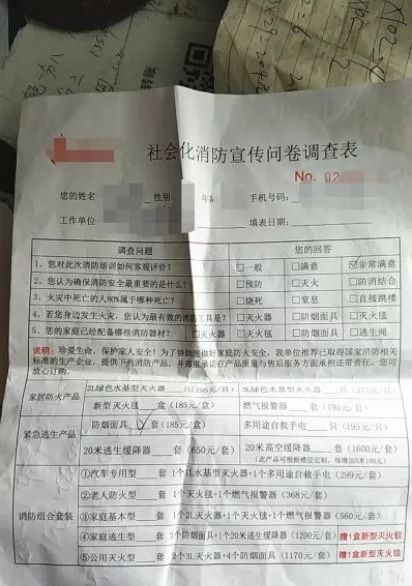 社会化消防宣传问卷调查表
No. 02
您的姓名 性别 年龄 手机号码:
工作单位 填表日期:
调查问题 您的回答
1、您对此次消防培训如何客观评价? □一般 □满意 ☑非常满意
2、您认为确保消防安全最重要的是什么? □预防 □灭火 □防消结合
3、火灾中死亡的人80%属于哪种死亡? □烧死 □窒息 □直接跳楼
4、若您身边发生火灾,您认为最有效的消防工具是? □灭火器 □防烟面具 □灭火毯
5、您的家庭已经配备哪些消防器材? □灭火器 □灭火毯 □防烟面具 □逃生绳
说明:珍爱生命,保护家人安全!为了协助您做好家庭防火安全,我单位推荐已取得国家消防相关
标准的生产企业,提供下列消防产品,并郑重承诺在产品质量与售后服务方面承担连带责任,您可
放心订购。
家居防火产品 2L绿色水基型灭火器 具(195元/具) 3L绿色水基型灭火器 具(215元/具)
新型灭火毯 盒(185元/盒) 燃气报警器 套(195元/套)
紧急逃生产品 防烟面具 套(185元/盒) 多用途自救手电 具(195元/具)
20米逃生缓降器 套(650元/套) 20米高空缓降器 套(1600元/套)
(此产品可根据楼层定制,每增加5米100元)
消防组合套装 ①汽车专用型 套 1个1L水基型灭火器+1个多用途自救手电(299元/套)
②老人防火型 套 1个灭火毯+1个燃气报警器(368元/套)
③家庭基本型 套 1个2L灭火器+1个灭火毯+1个燃气报警器(560元/套)
④家庭逃生型 套 3个防烟面具+1个20米逃生缓降器(1200元/套) 赠1盒新型灭火毯
⑤公用灭火型 套 2个3L灭火器+4个防烟面具(1170元/套) 赠1盒新型灭火毯